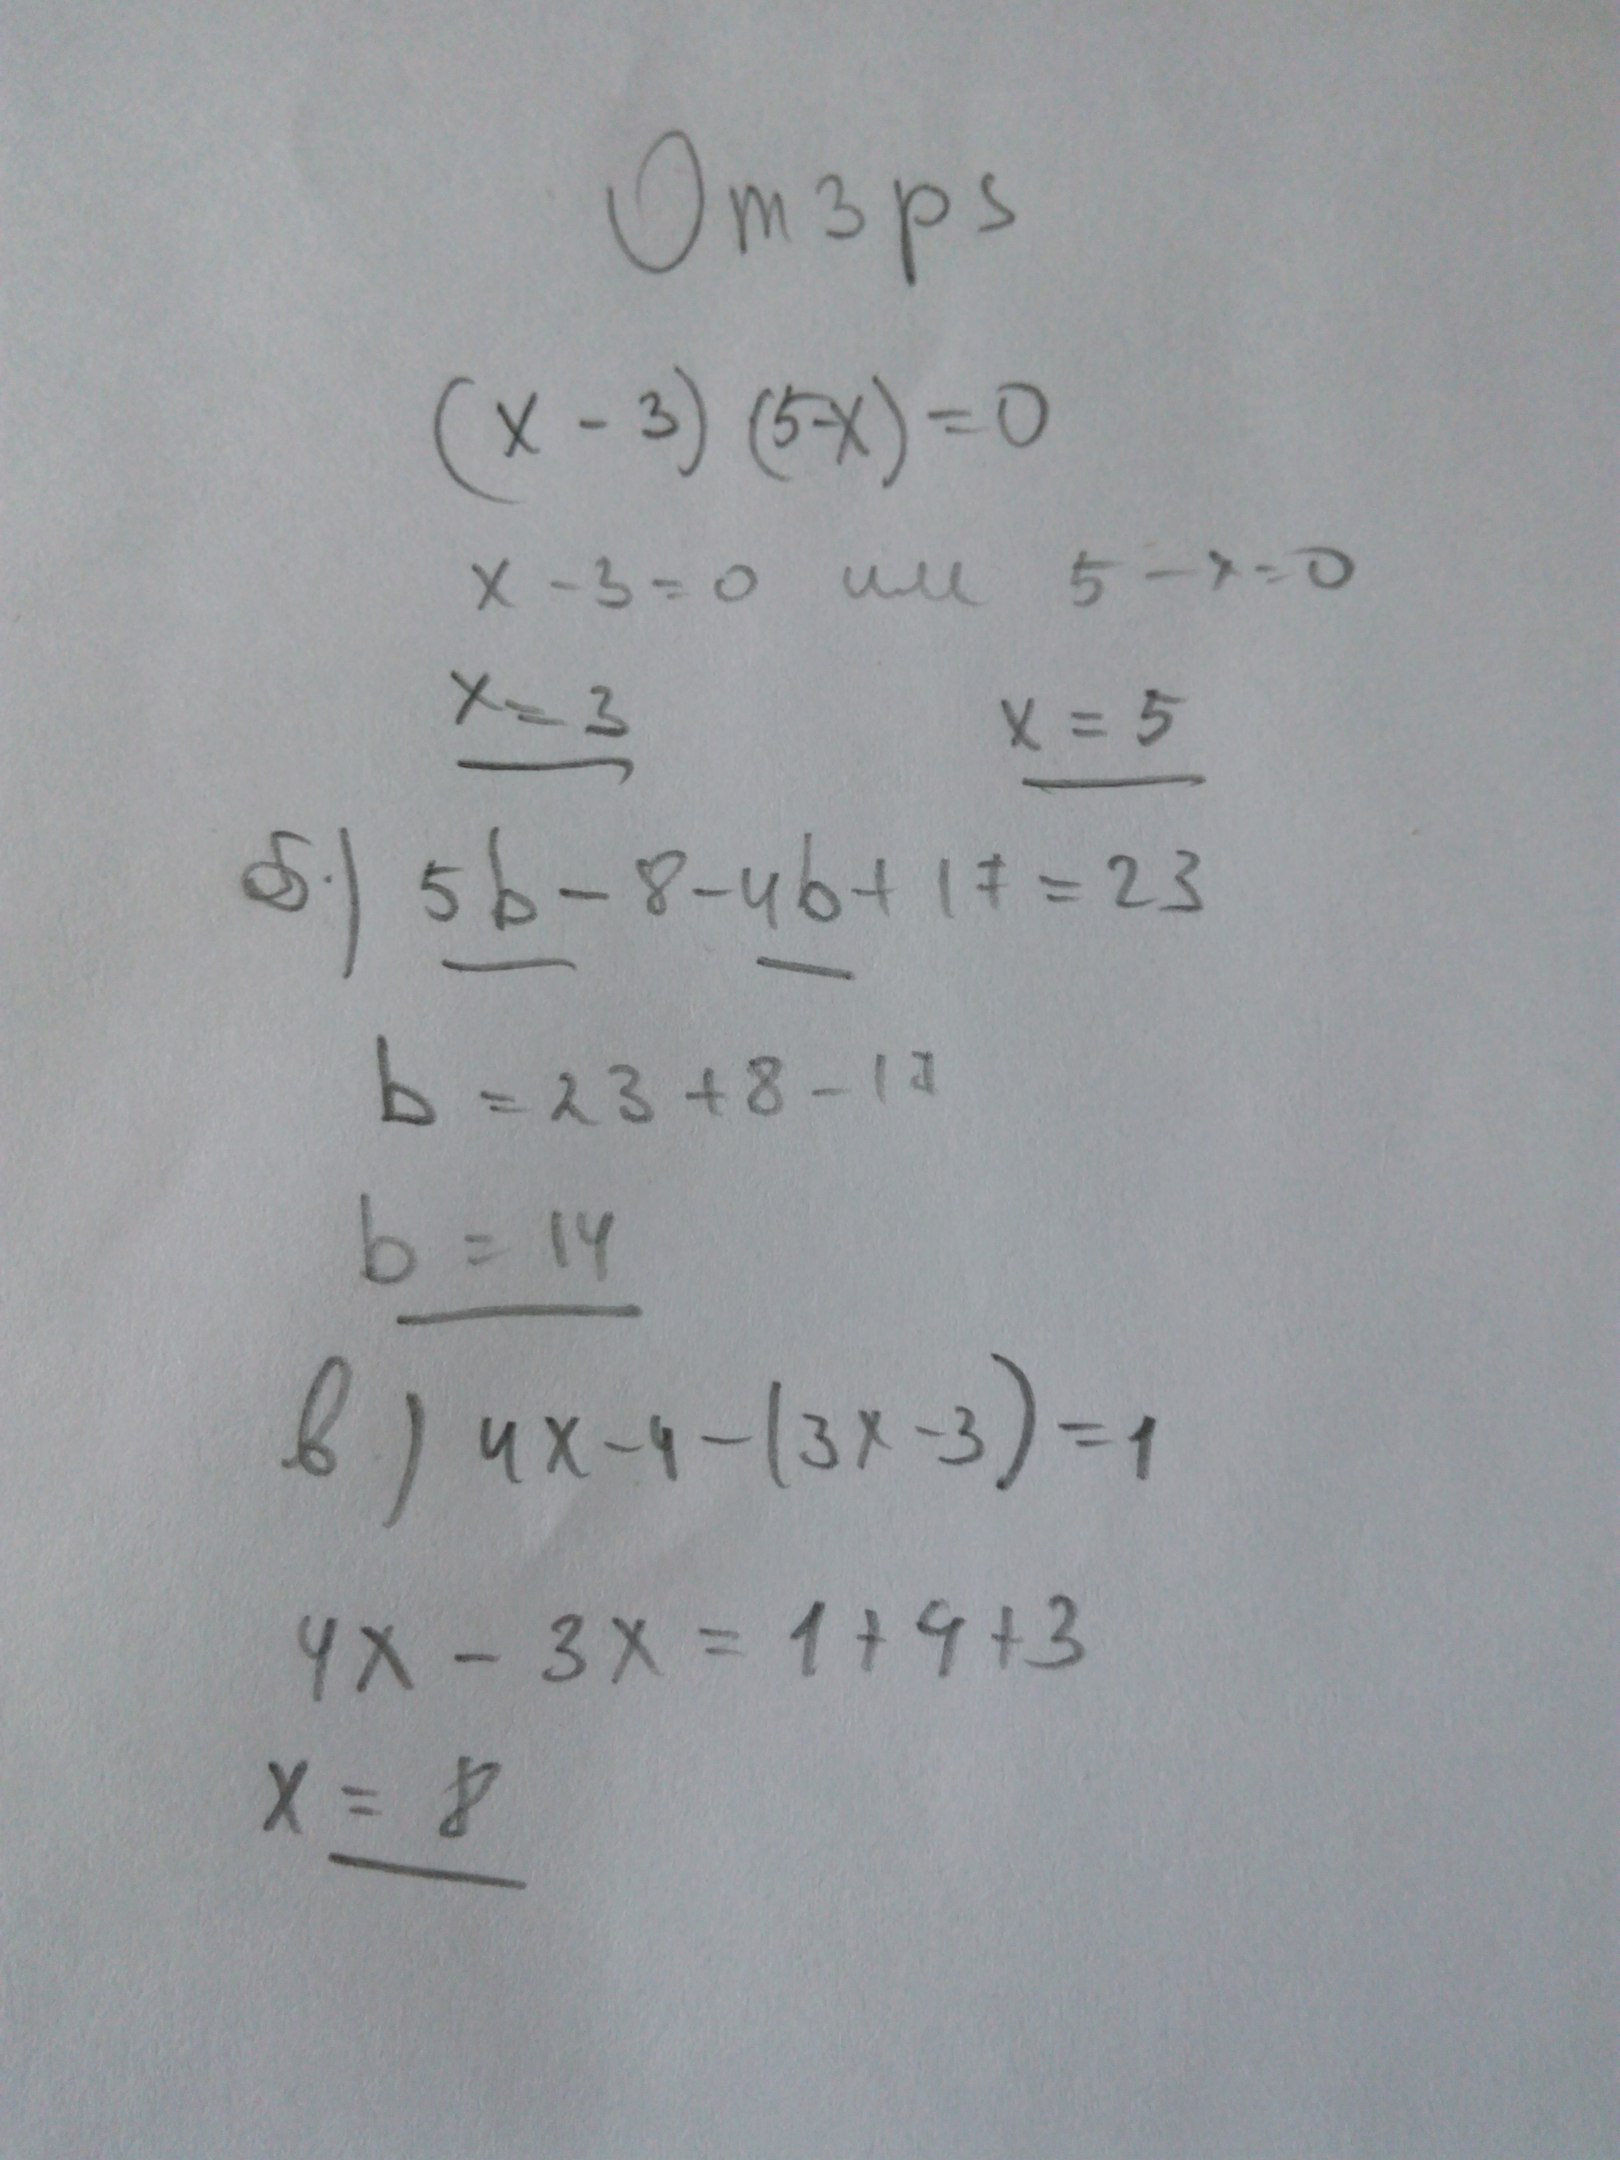 От зps
(x - 3) (5-x) = 0
x - 3 = 0 или 5 - x = 0
x = 3 x = 5
б.) 5b - 8 - 4b + 17 = 23
b = 23 + 8 - 17
b = 14
в.) 4x - 4 - (3x - 3) = 1
4x - 3x = 1 + 4 + 3
x = 8